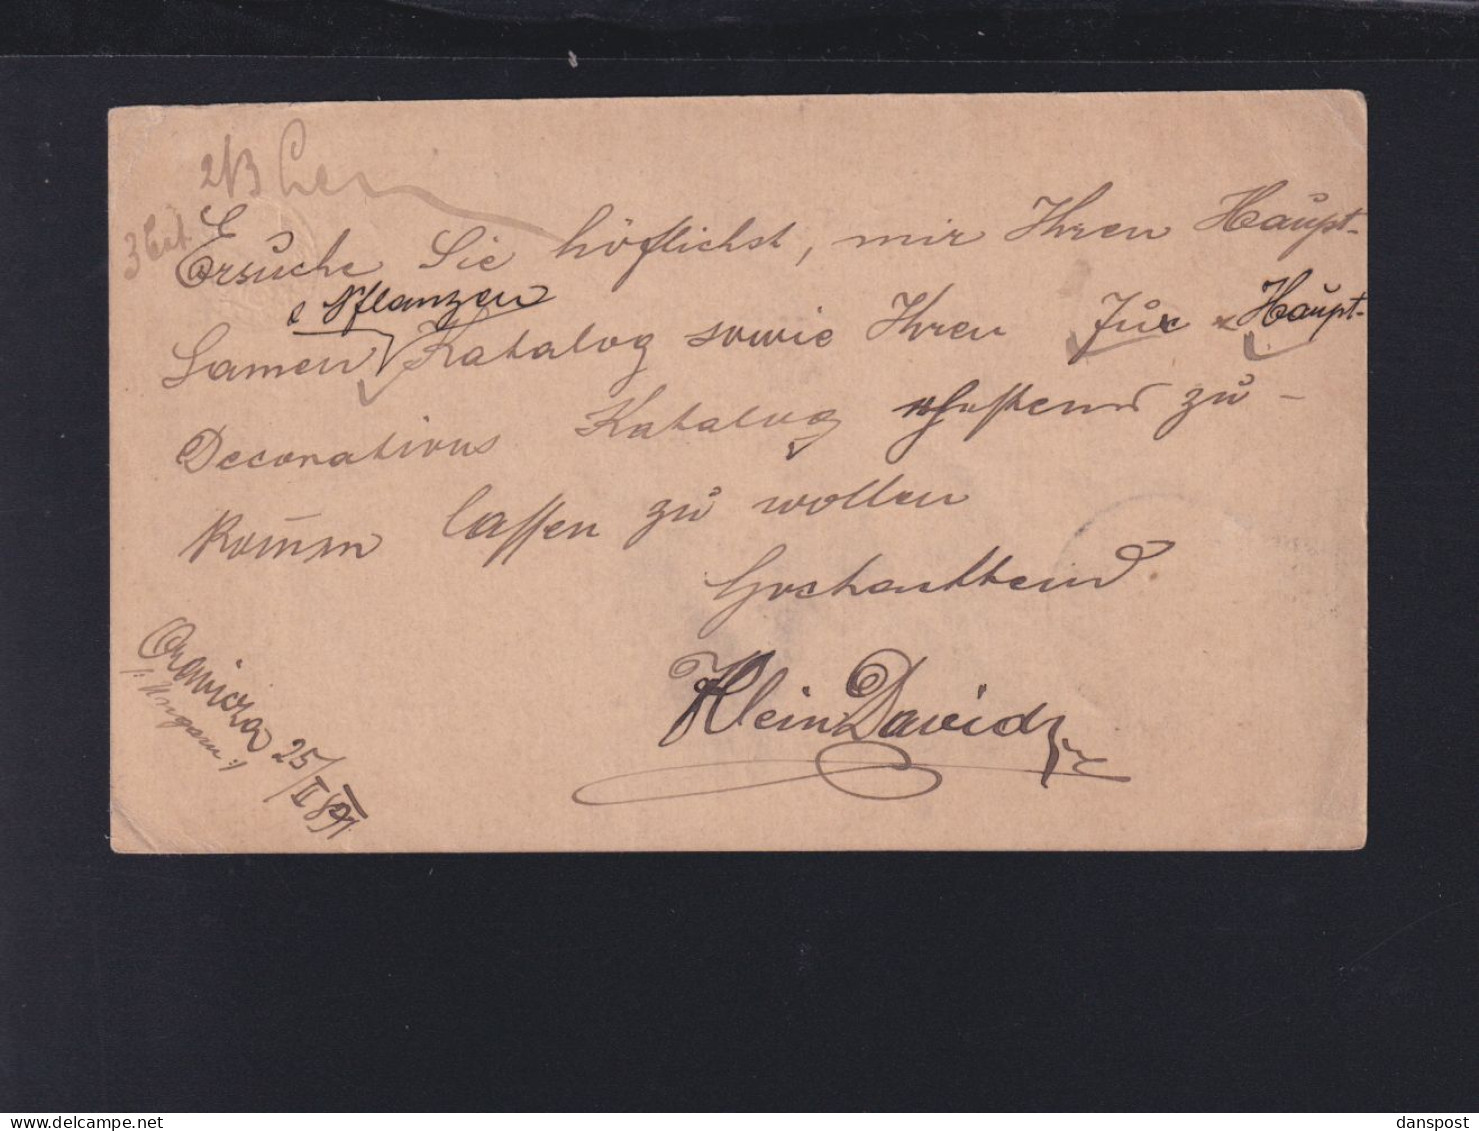 2/3
3 Cat.
Ersuche Sie höflichst, mir Ihren Haupt-
& Pflanzen
Samen Katalog sowie Ihren Jux & Haupt-
Decorations Katalog zu-
komen lassen zu wollen
Hochachtend
Klein David
Oravicza
/: Ungarn :/
25/II 891
danspost